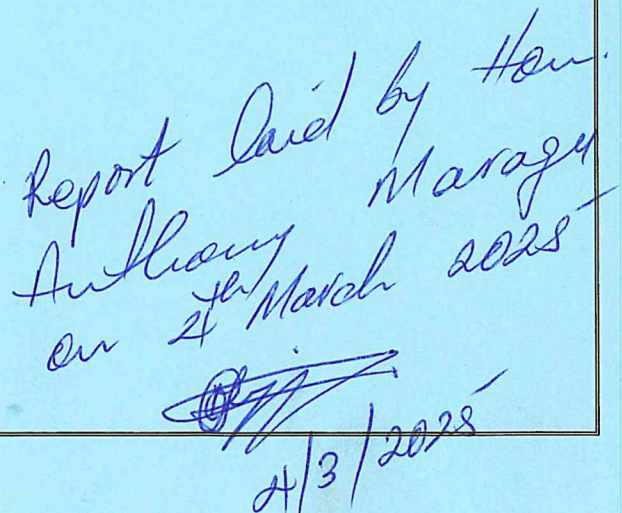 Report laid by Hon.
Anthony Maragu
on 4th March 2025
4/3/2025